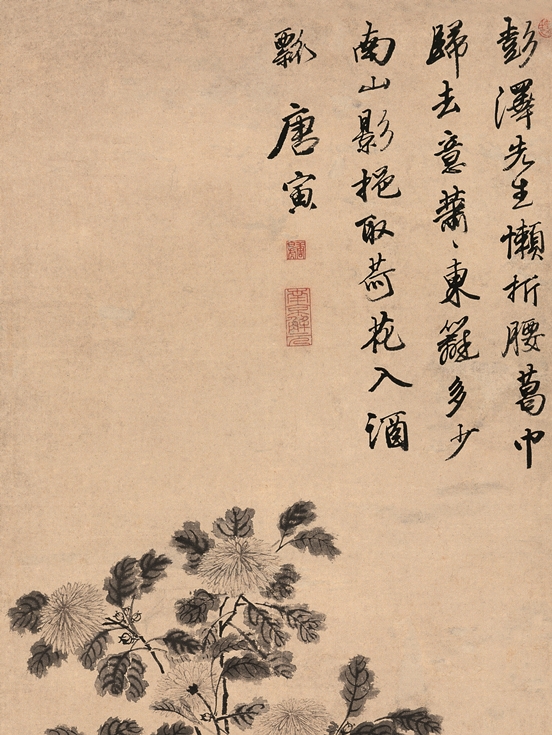 彭澤先生懶折腰葛巾
歸去意蕭、東籬多少
南山影挹取荷花入酒
瓢
唐寅
南京解元